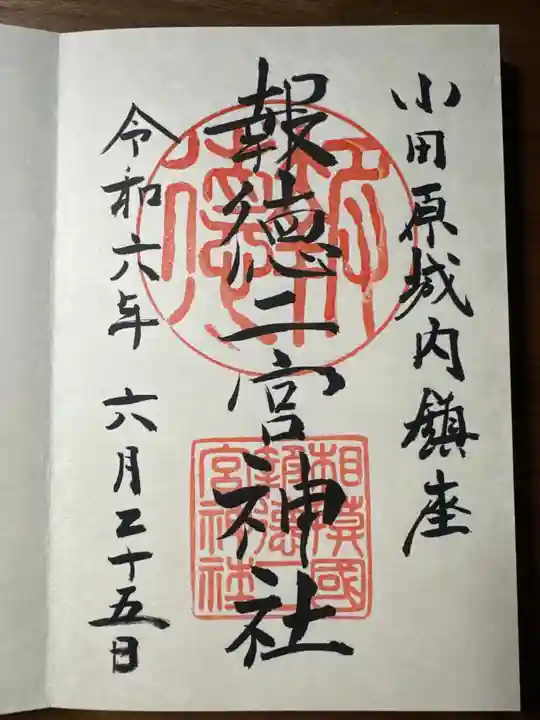 小田原城内鎮座
報徳二宮神社
令和六年 六月二十五日
相模國
報徳二
宮神社